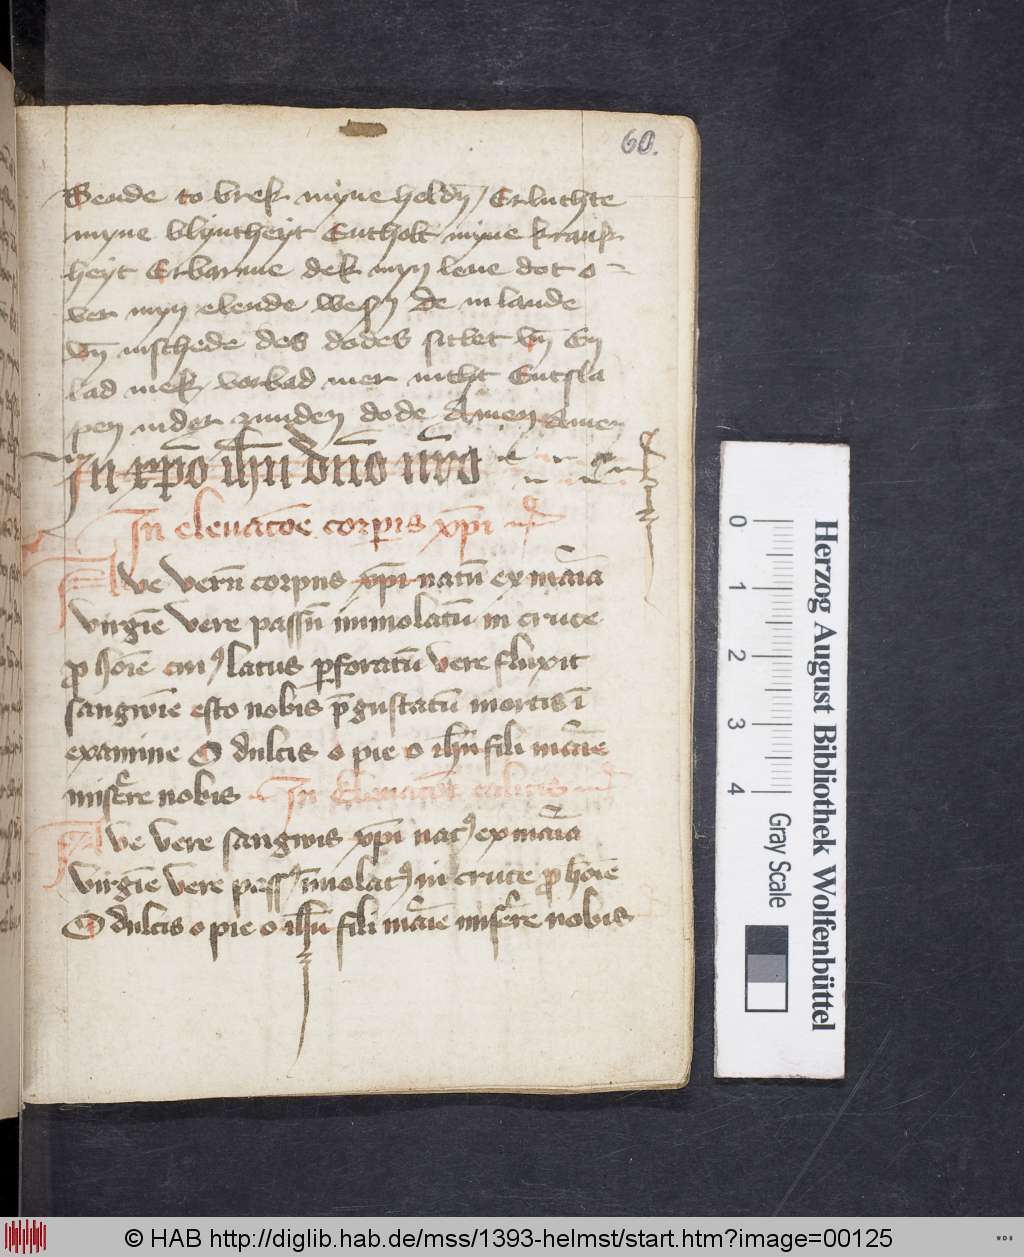 60.
Bende to brek myne heldn̄ / Erluchte
myne blyntheyt Entholt myne krank
heyt Erbarme dek myn leue dot o-
ver myn elende wesn̄ de in lande
vn̄ in schede des dodes sittet vn̄ En
lad mek vorbad mer nicht Entsla
pen in der zunden dode Amen Amen
In xp̄o ih̄u dn̄o nr̄o
In eleuacōe corpis xp̄i
Ave verū corpus xp̄i natū ex maīa
virgīe vere passū immolatū in cruce
ꝓ hoīe cui9 latus ꝑforatū vere fluxit
sangwīe esto nobis p̄gustatū mortis ī
examine O dulcis o pie o ih̄u fili maīe
misēre nobis In Eleuacōe calicis
Ave vere sangwis xp̄i nat9 ex maīa
virgīe vere pass9 īmolat9 in cruce ꝓ hoīe
O dulcis o pie o ih̄u fili maīe misēre nobis
0 1 2 3 4
Gray Scale
Herzog August Bibliothek Wolfenbüttel
© HAB http://diglib.hab.de/mss/1393-helmst/start.htm?image=00125